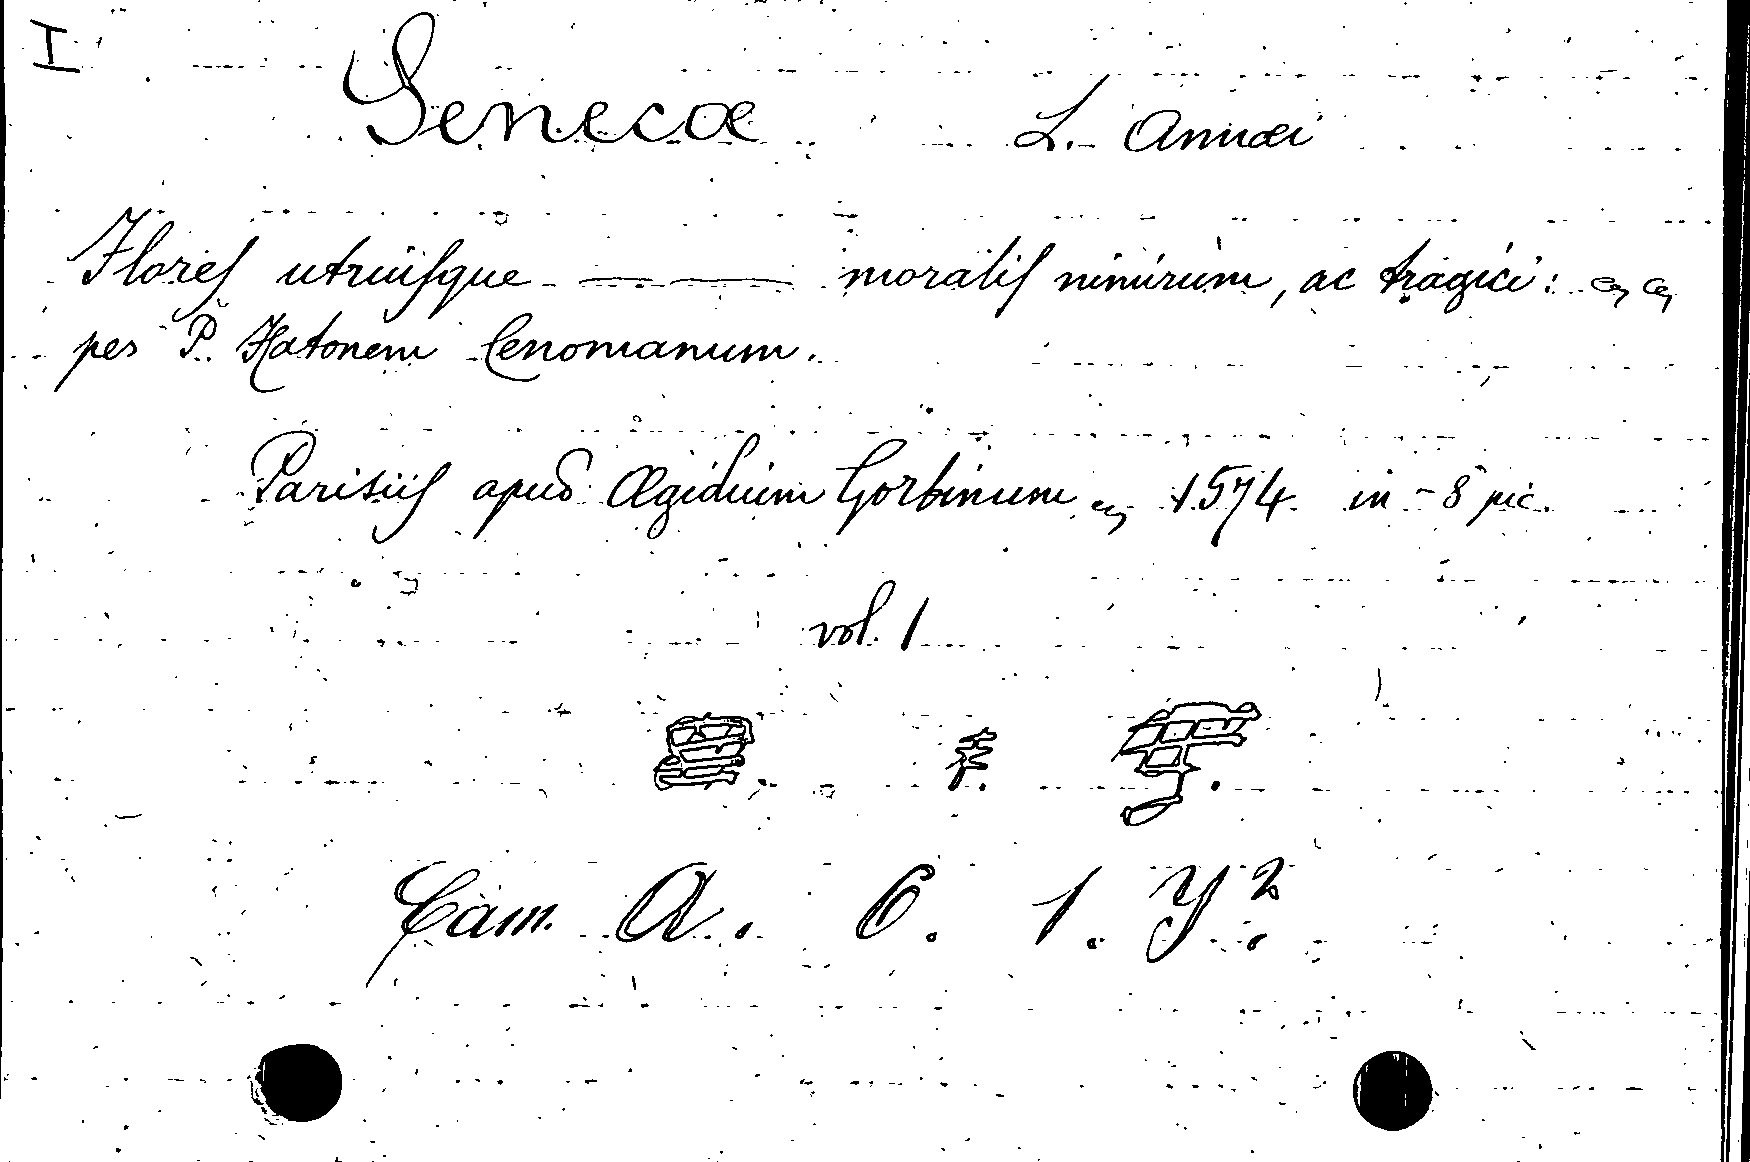 I
Senecæ L. Annæi
Flores utriusque —— —— moralis nimirum, ac tragici:
per P. Hatonem Cenomanum.
Parisiis apud Ægidium Gorbinum 1574. in-8° pic.
vol. 1
Cam. A. 6. 1. Y².